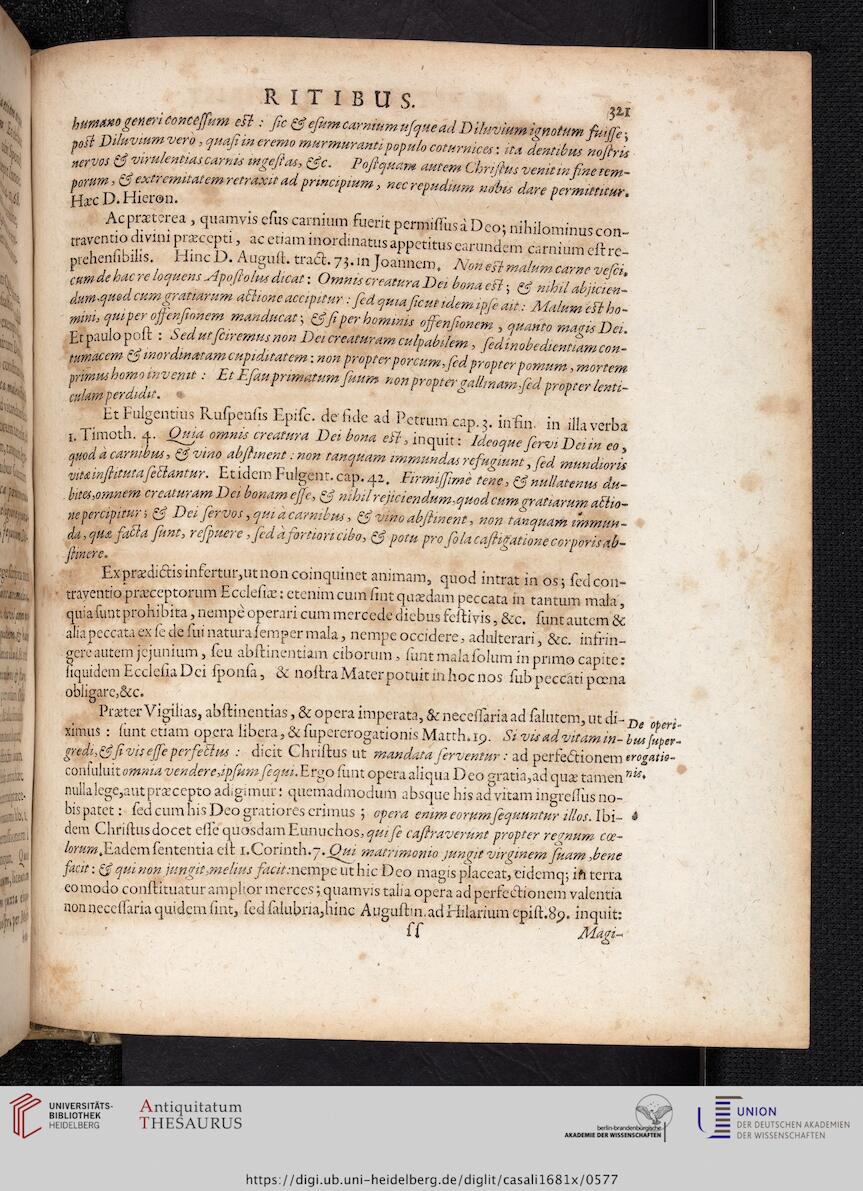 RITIBUS.
321
humano generi concessum est : sic & esum carnium usque ad Diluvium ignotum fuisse;
post Diluvium verò, quasi in eremo murmuranti populo coturnices: ita dentibus nostris
nervos & virulentias carnis ingestas, &c. Postquam autem Christus venit in fine tem-
porum, & extremitatem retraxit ad principium, nec repudium nobis dare permittitur.
Hæc D. Hieron.
Ac præterea, quamvis esus carnium fuerit permissus à Deo; nihilominus con-
traventio divini præcepti, ac etiam inordinatus appetitus earundem carnium est re-
prehensibilis. Hinc D. August. tract. 73. in Joannem. Non est malum carne vesci,
cum de hac re loquens Apostolus dicat: Omnis creatura Dei bona est; & nihil abjicien-
dum, quod cum gratiarum actione accipitur : sed quia sicut idem ipse ait: Malum est ho-
mini, qui per offensionem manducat; & si per hominis offensionem, quanto magis Dei.
Et paulo post : Sed ut sciremus non Dei creaturam culpabilem, sed inobedientiam con-
tumacem & inordinatam cupiditatem: non propter porcum, sed propter pomum, mortem
primus homo invenit : Et Esau primatum suum non propter gallinam, sed propter lenti-
culam perdidit.
Et Fulgentius Ruspensis Episc. de fide ad Petrum cap. 3. in fin. in illa verba
1. Timoth. 4. Quia omnis creatura Dei bona est, inquit: Ideoque servi Dei in eo,
quod à carnibus, & vino abstinent : non tanquam immundas refugiunt, sed mundioris
vitæ instituta sectantur. Et idem Fulgent. cap. 42. Firmissimè tene, & nullatenus du-
bites, omnem creaturam Dei bonam esse, & nihil rejiciendum, quod cum gratiarum actio-
ne percipitur; & Dei servos, qui à carnibus, & vino abstinent, non tanquam immun-
da, quæ facta sunt, respuere, sed à fortiori cibo, & potu pro sola castigatione corporis ab-
stinere.
Ex prædictis infertur, ut non coinquinet animam, quod intrat in os; sed con-
traventio præceptorum Ecclesiæ: etenim cum sint quædam peccata in tantum mala,
quia sunt prohibita, nempè operari cum mercede diebus festivis, &c. sunt autem &
alia peccata ex se de sui natura semper mala, nempe occidere, adulterari, &c. infrin-
gere autem jejunium, seu abstinentiam ciborum, sunt mala solum in primo capite:
siquidem Ecclesia Dei sponsa, & nostra Mater potuit in hoc nos sub peccati pœna
obligare, &c.
Præter Vigilias, abstinentias, & opera imperata, & necessaria ad salutem, ut di-
ximus : sunt etiam opera libera, & supererogationis Matth. 19. Si vis ad vitam in-
gredi, & si vis esse perfectus : dicit Christus ut mandata serventur : ad perfectionem
consuluit omnia vendere, ipsum sequi. Ergo sunt opera aliqua Deo gratia, ad quæ tamen
nulla lege, aut præcepto adigimur: quemadmodum absque his ad vitam ingressus no-
bis patet : sed cum his Deo gratiores erimus ; opera enim eorum sequuntur illos. Ibi-
dem Christus docet esse quosdam Eunuchos, qui se castraverunt propter regnum cæ-
lorum, Eadem sententia est 1. Corinth. 7. Qui matrimonio jungit virginem suam, bene
facit : & qui non jungit, melius facit: nempe ut hic Deo magis placeat, eidemq; in terra
eo modo constituatur amplior merces; quamvis talia opera ad perfectionem valentia
non necessaria quidem sint, sed salubria, hinc Augustin. ad Hilarium epist. 89. inquit:
De operi-
bus super-
erogatio-
nis.
ss
Magi-
UNIVERSITÄTS-
BIBLIOTHEK
HEIDELBERG
Antiquitatum
THESAURUS
berlin-brandenburgische
AKADEMIE DER WISSENSCHAFTEN
UNION
DER DEUTSCHEN AKADEMIEN
DER WISSENSCHAFTEN
https://digi.ub.uni-heidelberg.de/diglit/casali1681x/0577